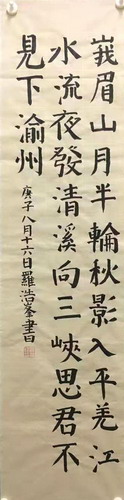 峩眉山月半輪秋影入平羌江
水流夜發清溪向三峽思君不
見下渝州
庚子八月十六日羅浩峯書